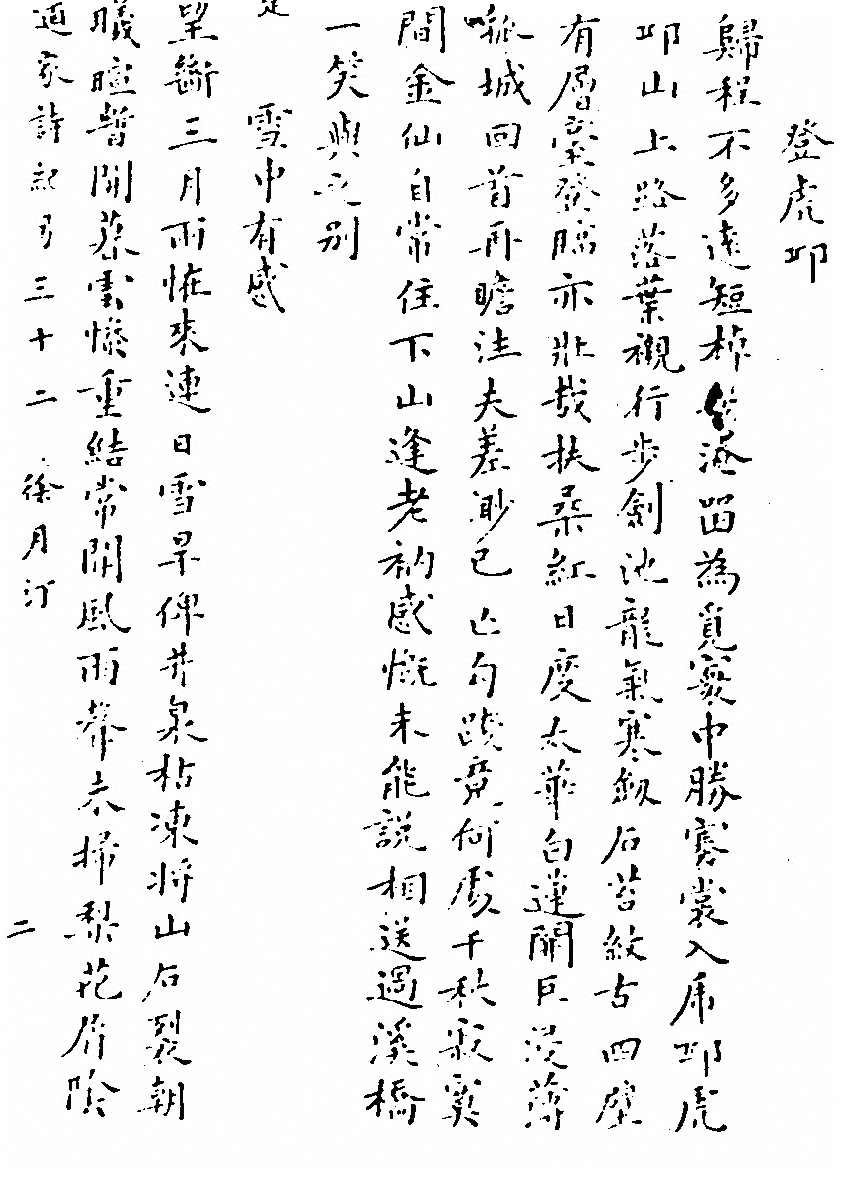 登虎邱
歸程不多遠短棹從淹留為覓寰中勝褰裳入虎邱虎
邱山上路落葉襯行步劍池龍氣寒釼石苔紋古四壁
有層臺登臨亦壯哉扶桑紅日度太華白蓮開巨浸薄
孤城回首再瞻注夫差渺已亡勾踐竟何處千秋寂寞
間金仙自常住下山逢老衲感慨未能說相送過溪橋
一笑與之別
雪中有感
望斷三月雨恠來連日雪旱俾井泉枯凍將山石裂朝
曦暄暫開暮雲慘重結常聞風雨 未掃梨花屑陰
通家詩記 三十二 徐月汀
二